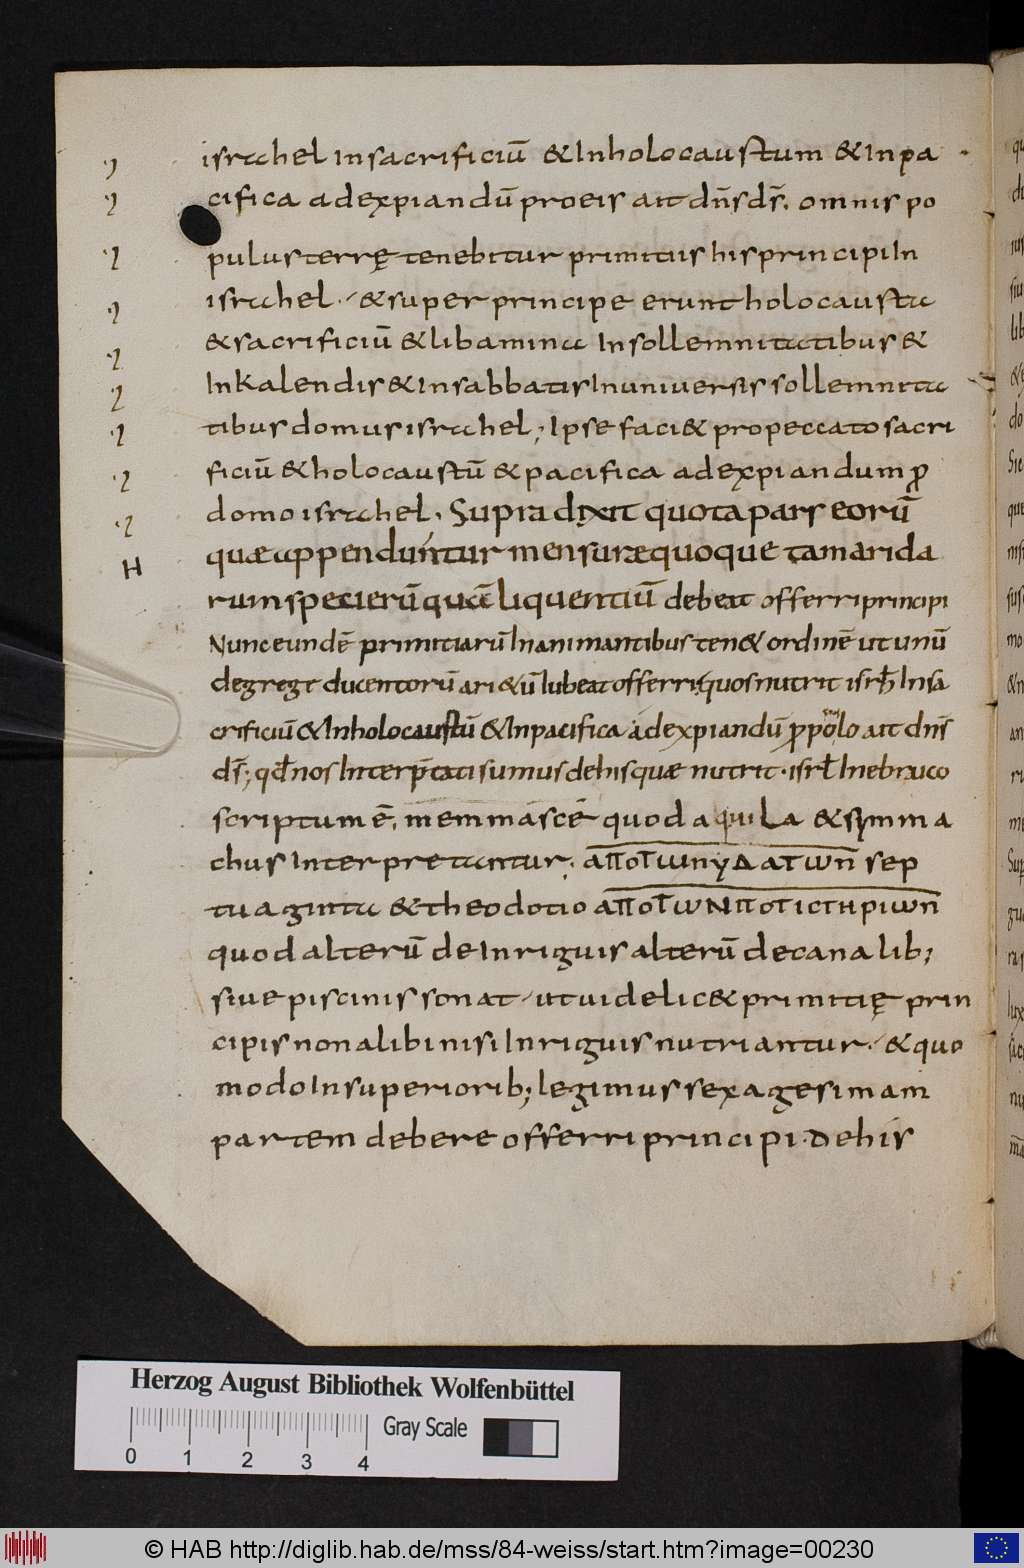 israhel insacrificiū &Inholocaustum &Inpa
cifica adexpiandū proeis ait dn̄s ds̄. omnis po
pulus terrę tenebitur primitiis his principi In
israhel. &super principe erunt holocausta
&sacrificiū &libamina In sollemnitatibus &
InKalendis &Insabbatis In universis sollemnita
tibus domus israhel; Ipse faci& propeccato sacri
ficiū &holocaustū &pacifica adexpiandum ꝓ
domo israhel. Supra dixit quota pars eorū
quæ appenduntur mensuræ quoque tam arida
rum specierū quā liquentiū debeat offerri principi
Nunc eundē primitiarū Inanimantibus ten& ordinē ut unū
degrege ducentorū ari&ū Iubeat offerri, quos nutrit isrł Insa
crificiū &Inholocaustū &Inpacifica adexpiandū ꝓ polo ait dn̄s
ds̄; qđ nos Interp̄tati sumus dehis quæ nutrit. isrł Inebraico
scriptum ē, memmascē quod aquila &symma
chus Interpretantur. αποτωνυΔατων̄ sep
tuaginta &theodotio αποτωΝποτιστηριων̄
quod alterū de Inriguis alterū decanalib;
sive piscinis sonat ut videlic& primitię prin
cipis non alibi nisi Inriguis nutriantur. &quo
modo Insuperiorib; legimus sexagesimam
partem debere offerri principi. dehis
H
Herzog August Bibliothek Wolfenbüttel
Gray Scale
0 1 2 3 4
© HAB http://diglib.hab.de/mss/84-weiss/start.htm?image=00230